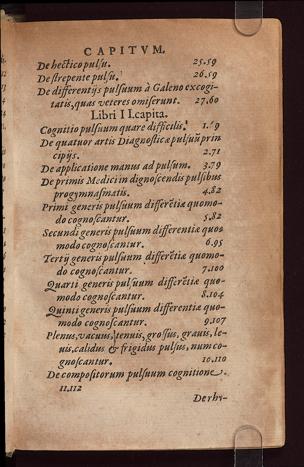 CAPITVM.
De hectico pulſu. 25.59
De ſtrepente pulſu. 26.59
De differentijs pulſuum à Galeno excogi-
tatis, quas veteres omiſerunt. 27.60
Libri II. capita.
Cognitio pulſuum quare difficilis. 1.69
De quatuor artis Diagnoſticæ pulſuũ prin
cipijs. 2.71
De applicatione manus ad pulſum. 3.79
De primis Medici in dignoſcendis pulſibus
progymnaſmatis. 4.82
Primi generis pulſuum differẽtiæ quomo-
do cognoſcantur. 5.82
Secundi generis pulſuum differentiæ quo
modo cognoſcantur. 6.95
Tertij generis pulſuum differẽtiæ quomo-
do cognoſcantur. 7.100
Quarti generis pulſuum differẽtiæ quo-
modo cognoſcantur. 8.104
Quinti generis pulſuum differentiæ quo-
modo cognoſcantur. 9.107
Plenus, vacuus, tenuis, groſſus, grauis, le-
uis, calidus & frigidus pulſus, num co-
gnoſcantur. 10.110
De compoſitorum pulſuum cognitione.
11.112
De rhy-